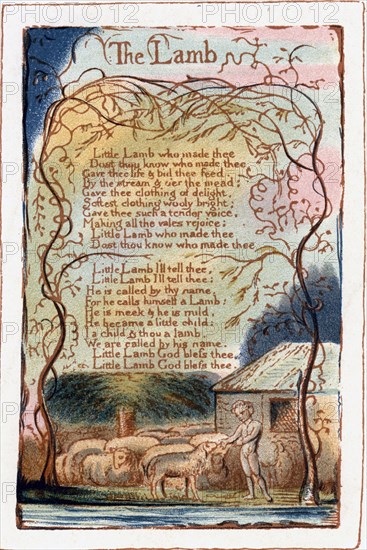 The Lamb
Little Lamb who made thee
Dost thou know who made thee
Gave thee life & bid thee feed.
By the stream & o'er the mead;
Gave thee clothing of delight,
Softest clothing wooly bright;
Gave thee such a tender voice,
Making all the vales rejoice:
Little Lamb who made thee
Dost thou know who made thee
Little Lamb I'll tell thee,
Little Lamb I'll tell thee:
He is called by thy name,
For he calls himself a Lamb:
He is meek & he is mild,
He became a little child:
I a child & thou a lamb,
We are called by his name.
Little Lamb God bless thee,
Little Lamb God bless thee.
PHOTO12